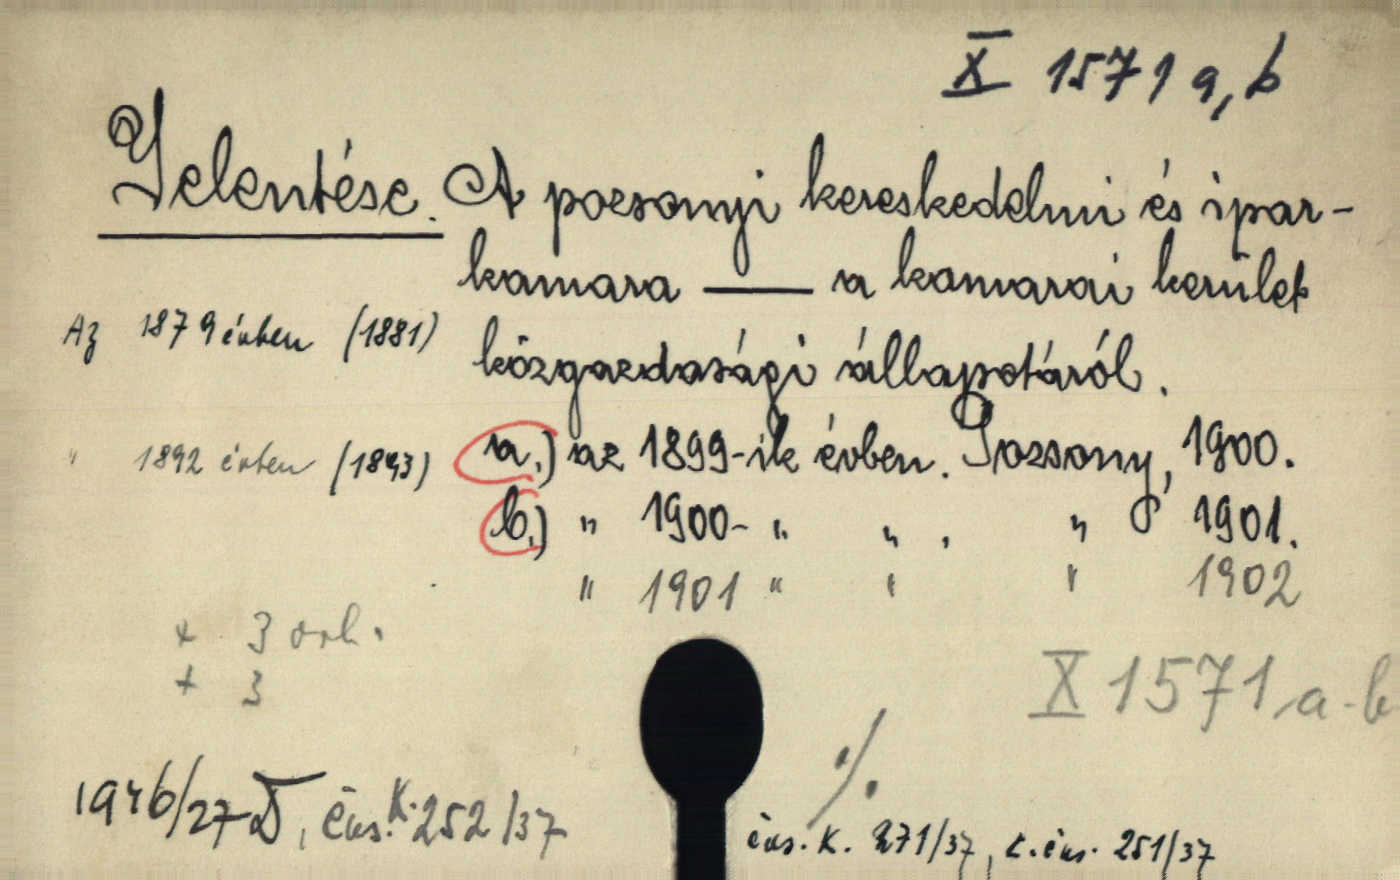 X 1571 a, b
Jelentése. A pozsonyi kereskedelmi és ipar-
kamara —— a kamarai kerület
Az 1879 évben (1881)
közgazdasági állapotáról.
" 1892 évben (1893)
a.) az 1899-ik évben. Pozsony, 1900.
b.) " 1900- " " . " 1901.
" 1901 " " " 1902
+ 3 orb.
+ 3
X 1571 a-b
·/.
1946/27 D, čas. K. 252/37
čas. K. 271/37, k. čas. 251/37